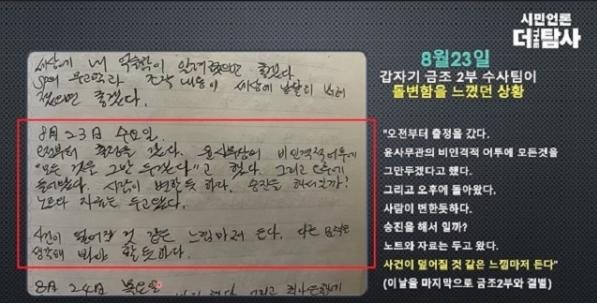 시민언론
더탐사
세상에 내 억울함이 알려졌으면 좋겠다
조작 내용이 세상에 낱낱이 밝혀
졌으면 좋겠다.
8월 23일 수요일.
오전부터 출정을 갔다. 윤사무관의 비인격적 어투에
"모든 것을 그만 두겠다"고 했다. 그리고 오후에
돌아왔다. 사람이 변한듯 하다. 승진을 해서일까?
노트와 자료는 두고왔다.
사건이 엎어질 것 같은 느낌마저 든다. 다른
생각해 봐야 할듯하다.
8월 24일 목요일
8월23일
갑자기 금조 2부 수사팀이
돌변함을 느꼈던 상황
"오전부터 출정을 갔다.
윤사무관의 비인격적 어투에 모든것을
그만두겠다고 했다.
그리고 오후에 돌아왔다.
사람이 변한듯하다.
승진을 해서 일까?
노트와 자료는 두고 왔다.
사건이 엎어질 것 같은 느낌마저 든다"
(이날을 마지막으로 금조2부와 결별)